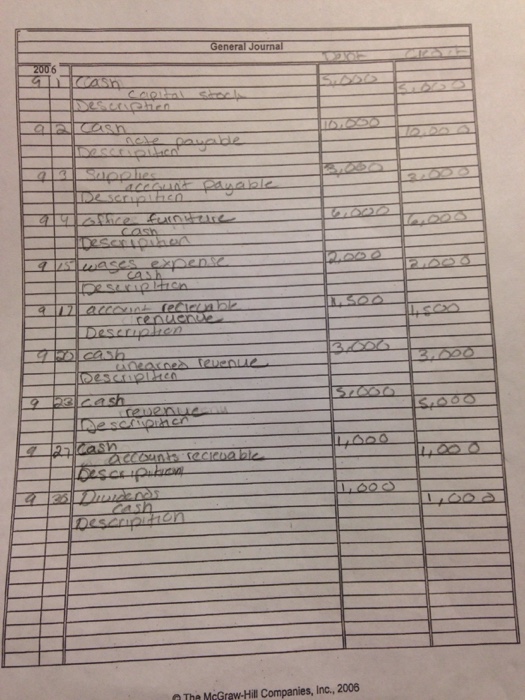 General Journal
Debt Credit
2006
9 1 Cash 5,000
capital stock 5,000
Description
9 2 Cash 10,000
note payable 10,000
Descripition
9 3 Supplies 3,000
account payable 3,000
Descripition
9 4 office furniture 6,000
cash 6,000
Descripition
9 15 wages expense 2,000
cash 2,000
Descripition
9 17 account recievable 1,500
renuenue 1,500
Description
9 20 cash 3,000
unearned revenue 3,000
Descripition
9 23 cash 5,000
revenue 5,000
Descripition
9 27 Cash 1,000
accounts recievable 1,000
Descripition
9 Dividends 1,000
cash 1,000
Descripition
© The McGraw-Hill Companies, Inc., 2006